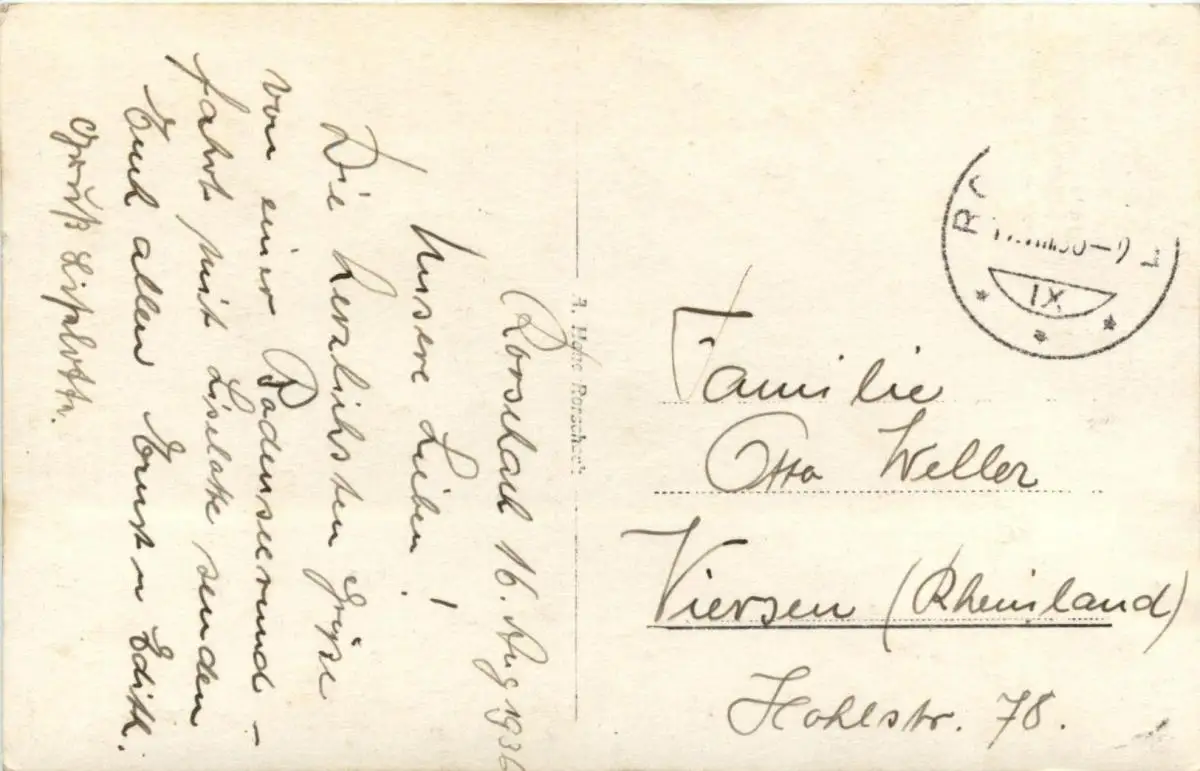 Rorschach 16. Aug 1936
Unsere Lieben!
Die herzlichsten Grüsse
von einer Bodenseerund-
fahrt mit Liselotte senden
Euch allen Ernst u Edith.
Gruß Liselotte.
A. Rorschach
IX
Familie
Otto Weller
Viersen (Rheinland)
Hohlstr. 78.